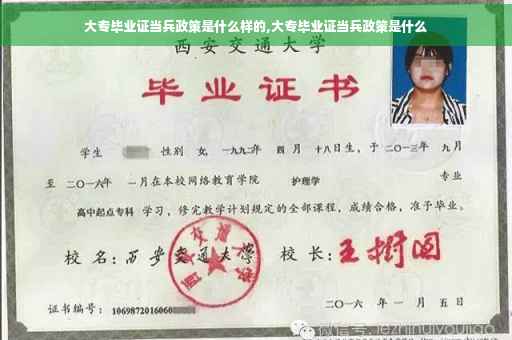 大专毕业证当兵政策是什么样的,大专毕业证当兵政策是什么
西安交通大学
毕业证书
学生 性别 女, 一九九二年 四月 十八日生, 于 二〇一三年 九月
至 二〇一六年 一月在本校网络教育学院 护理学 专业
高中起点专科 学习, 修完教学计划规定的全部课程, 成绩合格, 准予毕业。
校 名: 西安交通大学 校 长: 王树国
西安交通大学
证书编号: 1069872016060
二〇一六 年 一 月 五 日
微信号: jiezhinuiyoujiao